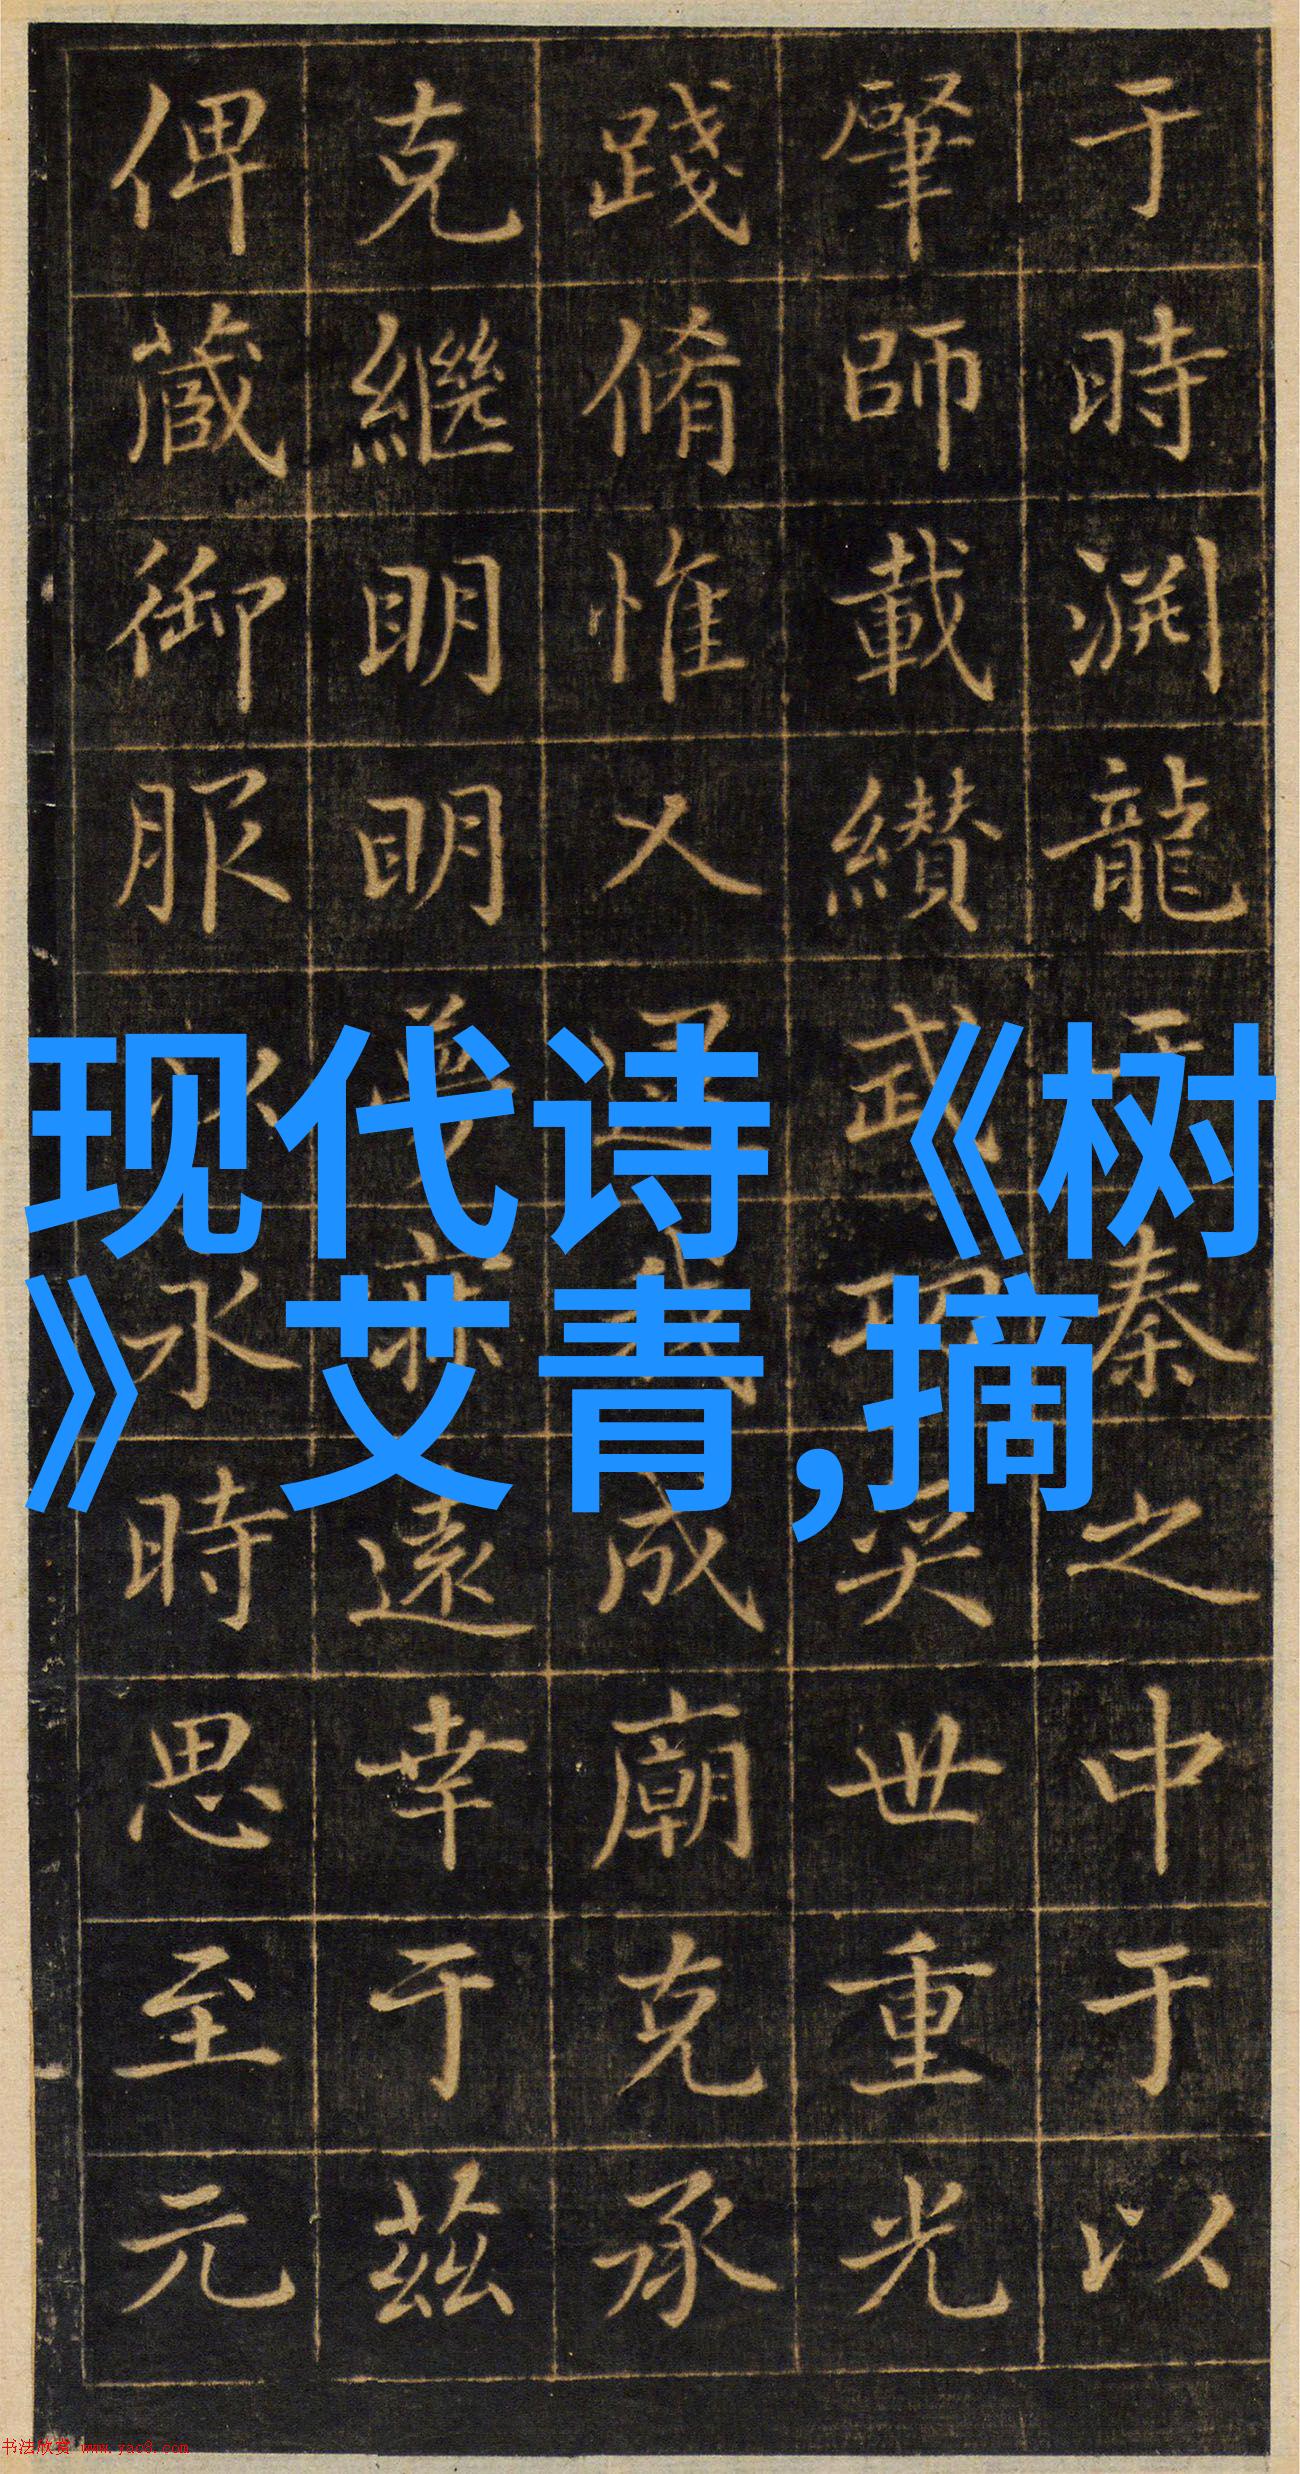 于時渊龍于秦之中于以
肇師載纘武功奕世重光
踐脩惟乂我成廟克承
克繼明明遠幸于茲
俾蕆御服永時思至元
现代诗《树
》艾青,摘
书法欣赏 www.yac8.com